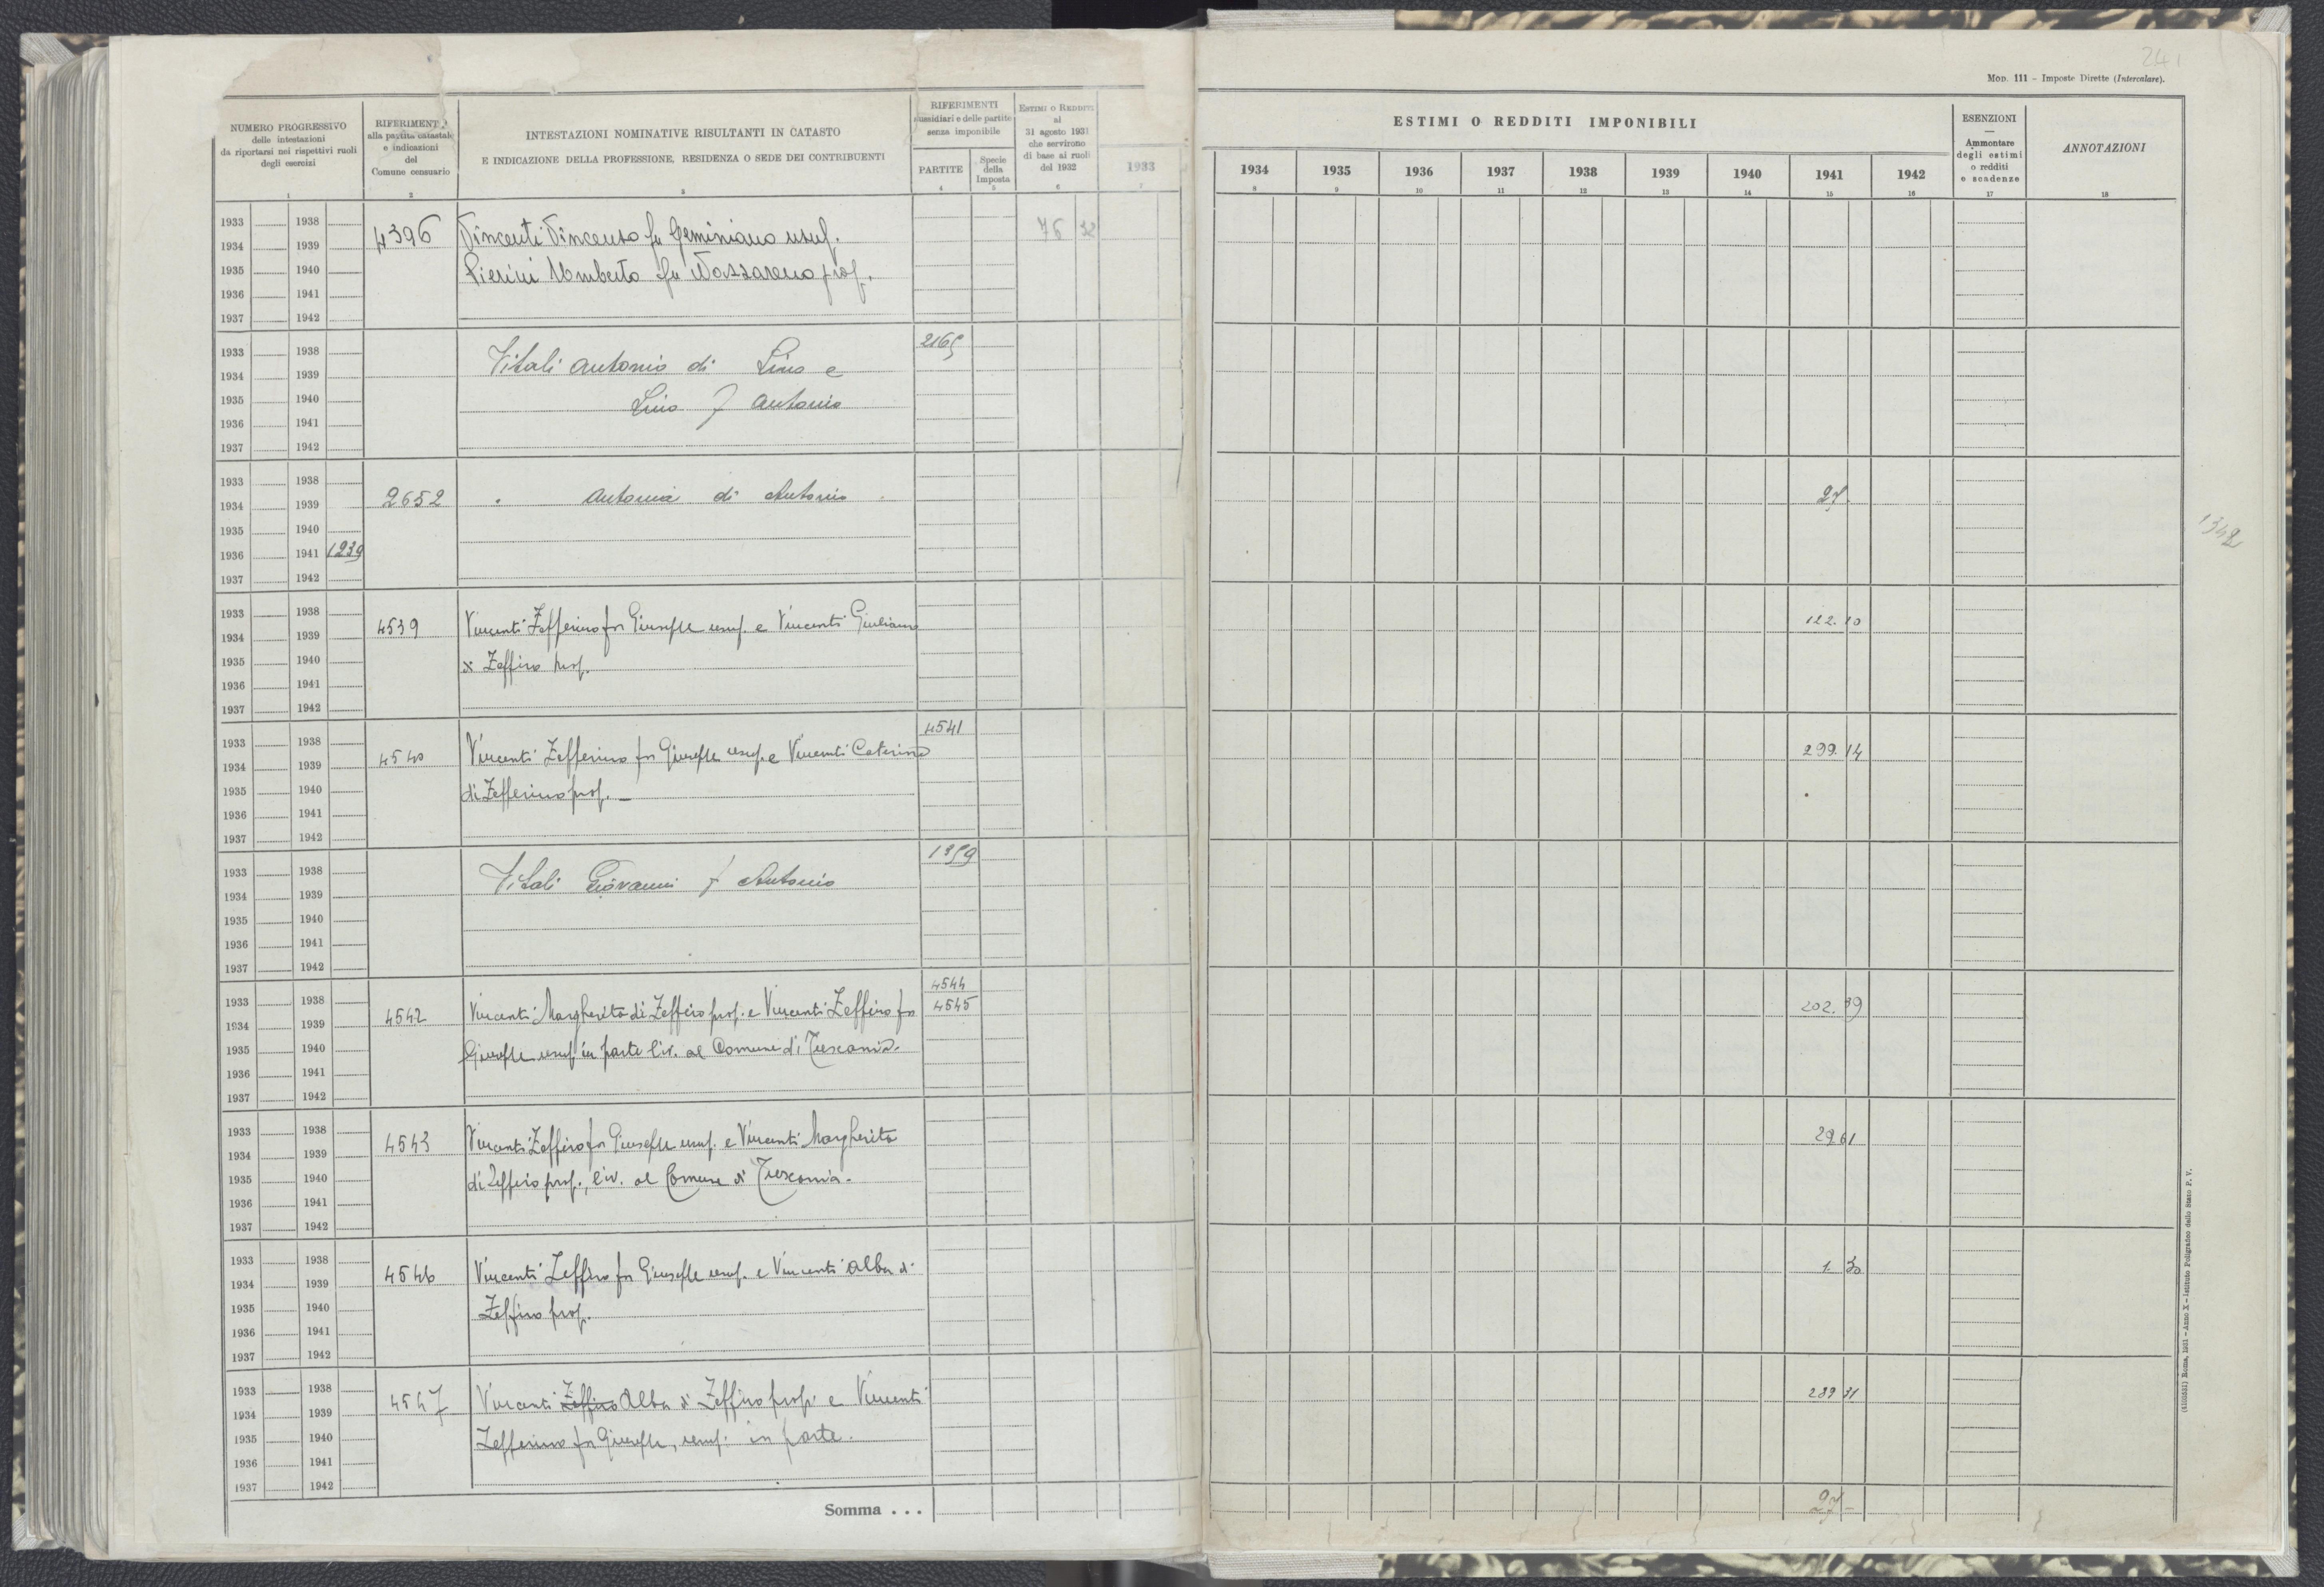 241
MOD. 111 - Imposte Dirette (Intercalare).
NUMERO PROGRESSIVO
delle intestazioni
da riportarsi nei rispettivi ruoli
degli esercizi
1
RIFERIMENTI
alla partita catastale
e indicazioni
del
Comune censuario
2
INTESTAZIONI NOMINATIVE RISULTANTI IN CATASTO
E INDICAZIONE DELLA PROFESSIONE, RESIDENZA O SEDE DEI CONTRIBUENTI
3
RIFERIMENTI
sussidiari e delle partite
senza imponibile
PARTITE
4
Specie
della
Imposta
5
ESTIMI O REDDITI
al
31 agosto 1931
che servirono
di base ai ruoli
del 1932
6
1933
7
ESTIMI O REDDITI IMPONIBILI
1934 1935 1936 1937 1938 1939 1940 1941 1942
8 9 10 11 12 13 14 15 16
ESENZIONI
—
Ammontare
degli estimi
o redditi
e scadenze
17
ANNOTAZIONI
18
1933 1938
1934 1939 4396 Vincenti Vincenzo fu Geminiano usuf. 76 32
1935 1940 Pierini Umberto fu Nazzareno prop.
1936 1941
1937 1942
1933 1938 2165
1934 1939 Vitali Antonio di Lino e
1935 1940 Lino f Antonio
1936 1941
1937 1942
1933 1938
1934 1939 2652 " Antonia di Antonio 27
1935 1940
1936 1941 1239
1937 1942
1342
1933 1938
1934 1939 4539 Vincenti Zefferino fu Giuseppe usuf. e Vincenti Giuliano 122.10
1935 1940 di Zeffiro prop.
1936 1941
1937 1942
1933 1938 4541
1934 1939 4540 Vincenti Zefferino fu Giuseppe usuf. e Vincenti Caterina 299.14
1935 1940 di Zefferino prop. —
1936 1941
1937 1942
1933 1938 1359
1934 1939 Vitali Giovanni f Antonio
1935 1940
1936 1941
1937 1942
4544
1933 1938 4545
1934 1939 4542 Vincenti Margherita di Zeffiro prop. e Vincenti Zeffiro fu 202.39
1935 1940 Giuseppe usuf. in parte liv. al Comune di Tuscania.
1936 1941
1937 1942
1933 1938
1934 1939 4543 Vincenti Zeffiro fu Giuseppe usuf. e Vincenti Margherita 29.61
1935 1940 di Zeffiro prop., liv. al Comune di Tuscania.
1936 1941
1937 1942
1933 1938
1934 1939 4546 Vincenti Zeffiro fu Giuseppe usuf. e Vincenti Alba di 1.30
1935 1940 Zeffiro prop.
1936 1941
1937 1942
1933 1938
1934 1939 4547 Vincenti Zeffiro Alba di Zeffiro prop. e Vincenti 289 31
1935 1940 Zefferino fu Giuseppe, usuf. in parte.
1936 1941
1937 1942
Somma . . . 27 –
(4105531) Roma, 1931 - Anno X - Istituto Poligrafico dello Stato P. V.